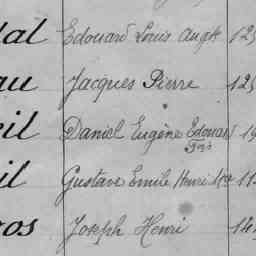 dal Edouard Louis Augte 125
au Jacques Pierre 125
eil Daniel Eugène Edouard 19
Frs
il Gustave Emile Henri 11
ros Joseph Henri 14